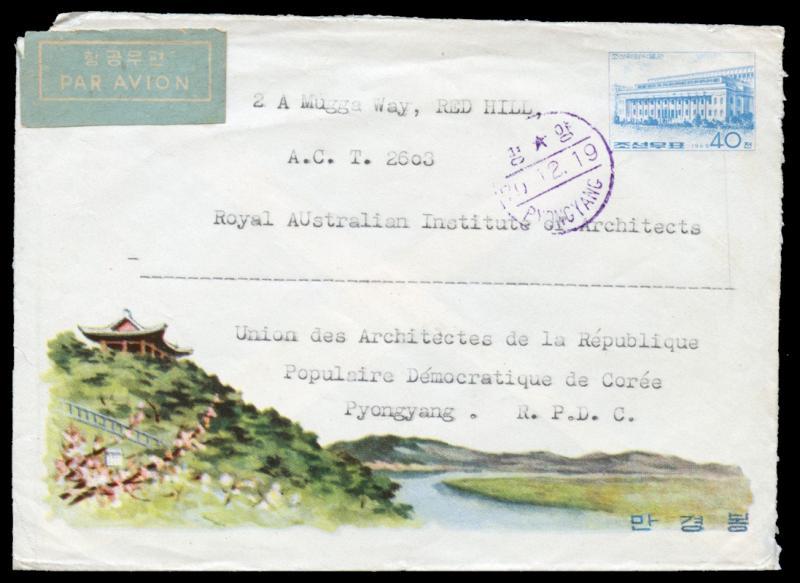 항공우편
PAR AVION
2 A Mugga Way, RED HILL,
A.C. T. 2603
Royal AUstralian Institute of Architects
Union des Architectes de la République
Populaire Démocratique de Corée
Pyongyang . R. P.D. C.
조선우표 40 전
평 ★ 양
12.19
PYONGYANG
만 경 봉